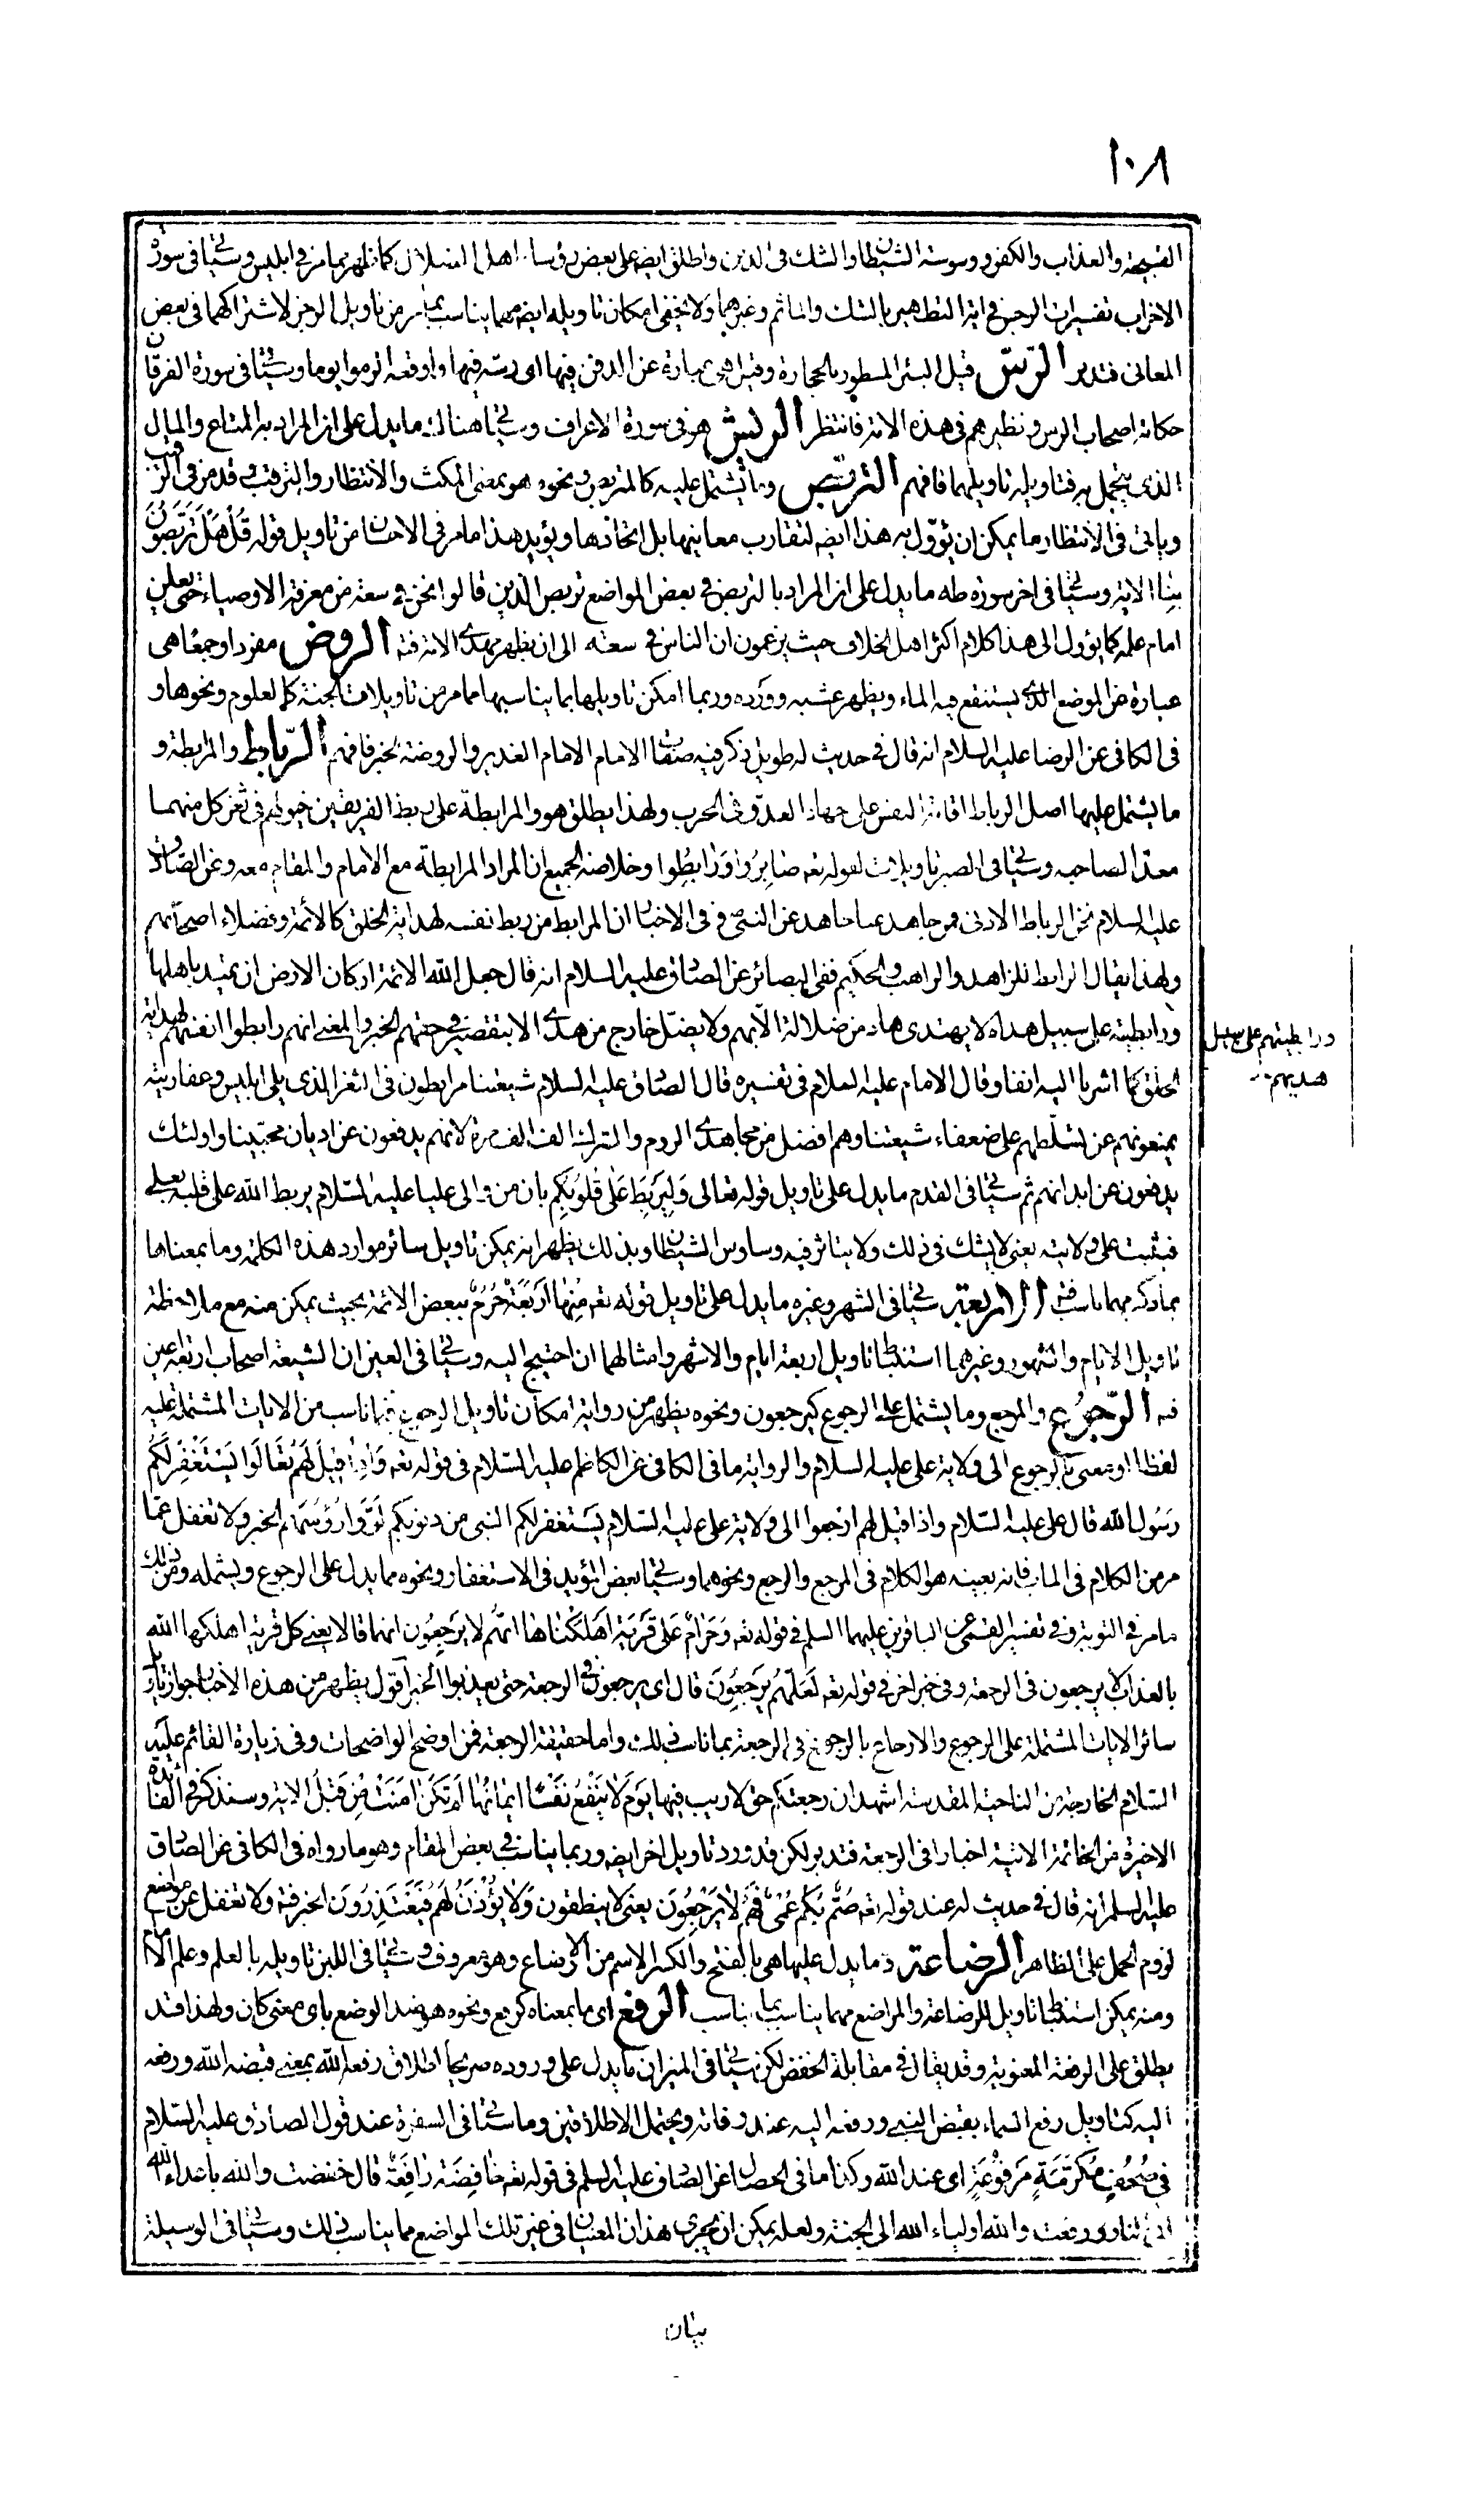 ١٠٨
القبيحة والعذاب والكفر ووسوسة الشيطان والشك فى الدين واطلق ايضه على بعض رؤساء اهل الضلال كما ظهر مما مر فى ابليس وسيأتى فى سورة
الاحزاب تفسير الرجس فى اية التطهير بالشك والماثم وغيرهما ولا يخفى امكان تاويله ايضه مهما يناسب بما مر من تاويل الرجز لاشتراكهما فى بعض
المعانى فتدبر الرّسّ قيل البئر المطوية بالحجارة وقيل هى عبارة عن الدفن فيها اى رسّه فيها واوقعه اتوموا يوما وسيأتى فى سورة الفرقان
حكاية اصحاب الرس ونظيرهم فى هذه الامة فانتظر الريش هو فى سورة الاعراف وسيأتى هناك ما يدل على ان المراد به المتاع والمال
الذى يتجمل به فتاويله تاويلهما فافهم التربّص وما يشتمل عليه كالمتربص ونحوه هو بمعنى المكث والانتظار والترقب وقد مر فى الترقب
وياتى فى الانتظار ما يمكن ان يؤوّل به هذا ايضه لتقارب معانيها بل اتحادها ويؤيد هذا ما مر فى الاحسان من تاويل قوله قُلْ هَلْ تَرَبَّصُونَ
بِنَا الاية وسيأتى فى اخر سورة طه ما يدل على ان المراد بالتربص فى بعض المواضع تربص الذين قالوا نحن فى سعة من معرفة الاوصياء حتى يعلن
امام علمه كما يؤول الى هذا كلام اكثر اهل الخلاف حيث يزعمون ان الناس فى سعته الى ان يظهر مهدى الامة فتد الروض مفردا وجمعًا هى
عبارة عن الموضع الذى يستنقع فيه الماء ويظهر عشبه وورده وربما امكن تاويلها بما يناسبها مما مر من تاويلات الجنة كالعلوم ونحوها و
فى الكافى عن الرضا عليه السلام انه قال فى حديث له طويل ذكر فيه صفات الامام الامام الغدير والروضة الخبر فافهم الرّباط والمرابطة و
ما يشتمل عليها اصل الرباط اقامة النفس على جهاد العدوّ فى الحرب ولهذا يطلق هو والمرابطة على ربط الفريقين خيولهم فى ثغر كل منهما
معدّ الصاحبه وسيأتى فى الصبر تاويلات لقوله تعه صَابِرُوا وَرَابِطُوا وخلاصة الجميع ان المراد المرابطة مع الامام والمقام معه وعن الصادق
عليه السلام نحن الرباط الادنى فمن جاهد عنا جاهد عن النبى ص وفى الاخبار ان المرابط من ربط نفسه لهداية الخلق كالائمة وفضلاء اصحابهم
ولهذا يقال الرابط للزاهد والراهب والحكيم ففى البصائر عن الصادق عليه السلام انه قال جعل الله الائمة اركان الارض ان تميد باهلها
ورابطية على سبيل هداه لا يهتدى هاد من ضلالة الا بهم ولا يضل خارج من هدى الا بتقصير فى حقهم الخبر والمعنى انهم رابطوا انفسهم لهداية
الخلق كما اشرنا اليه انفا وقال الامام عليه السلام فى تفسيره قال الصادق عليه السلام شيعتنا مرابطون فى الثغر الذى يلى ابليس وعفاريته
يمنعونهم عن تسلّطهم على ضعفاء شيعتنا وهم افضل من مجاهدى الروم والترك الف الف مرة لانهم يدفعون عن اديان محبّينا واولئك
يدفعون عن ابدانهم ثم سيأتى فى القدم ما يدل على تاويل قوله تعالى وَلِيَرْبِطَ عَلَى قُلُوبِكُمْ بان من والى عليا عليه السّلام يربط الله على قلبه بعلى
فيثبت على ولايته يعنى لا يشك فى ذلك ولا يتاثر فيه وساوس الشيطان وبذلك يظهر انه يمكن تاويل سائر موارد هذه الكلمة وما بمعناها
بما ذكر مهما ناسب فتد الاربعة سيأتى فى الشهر وغيره ما يدل على تاويل قوله تعه مِنْهَا اَرْبَعَةٌ حُرُمٌ ببعض الائمة بحيث يمكن منه مع ملاحظة
تاويل الايام والشهور وغيرهما استنباط تاويل اربعة ايام والاشهر وامثالهما ان احتيج اليه وسيأتى فى العين ان الشيعة اصحاب اربعة اعين
فتد الرّجُوع والمرجع وما يشتمل على الرجوع كيرجعون ونحوه يظهر من رواية امكان تاويل الرجوع فيما ناسب من الايات المشتملة عليه
لفظا او معنى بالرجوع الى ولاية على عليه السلام والرواية ما فى الكافى عن الكاظم عليه السّلام فى قوله تعه وَاِذَا قِيلَ لَهُمْ تَعَالَوْا يَسْتَغْفِرْ لَكُمْ
رَسُولُ الله قال على عليه السّلام واذا قيل لهم ارجعوا الى ولاية على عليه السّلام يستغفر لكم النبى من ذنوبكم لَوَّوْا رُؤُسَهُمْ الخبر ولا تغفل عمّا
مر من الكلام فى الماب فانه بعينه هو الكلام فى المرجع والرجع ونحوهما وسيأتى بعض المؤيد فى الاستغفار ونحوه مما يدل على الرجوع ويشمله ومن ذلك
ما مر فى التوبة وفى تفسير القمى عن الباقرين عليهما السلم فى قوله تعه وَحَرَامٌ عَلَى قَرْيَةٍ اَهْلَكْنَاهَا اَنَّهُمْ لا يَرْجِعُونَ انهما قالا يعنى كل قرية اهلكها الله
بالعذاب لا يرجعون فى الرجعة وفى خبر اخر فى قوله تعه لَعَلَّهُمْ يَرْجِعُونَ قال اى يرجعون فى الرجعة حتى يعذبوا الخبر اقول يظهر من هذه الاخبار جواز تاويل
سائر الايات المشتملة على الرجوع والارجاع بالرجوع فى الرجعة بما ناسب ذلك واما حقيقة الرجعة فمن اوضح الواضحات وفى زيارة القائم عليه
السّلام الخارجة من الناحية المقدسة اشهد ان رجعتكم حق لا ريب فيها يَوْمَ لا يَنْفَعُ نَفْسًا اِيمَانُهَا لَمْ تَكُنْ اٰمَنَتْ مِنْ قَبْلُ الاية وسنذكر فى الفائدة
الاخيرة من الخاتمة الاتية اخبارا فى الرجعة فتدبر لكن قد ورد تاويل اخر ايضه وربما يناسب فى بعض المقام وهو ما رواه فى الكافى عن الصادق
عليه السلم انه قال فى حديث له عند قوله تعه صُمٌّ بُكْمٌ عُمْىٌ فَهُمْ لا يَرْجِعُونَ يعنى لا ينطقون وَلا يُؤْذَنُ لَهُمْ فَيَعْتَذِرُونَ الخبر فتد ولا تغفل عن مواضع
لزوم الحمل على الظاهر الرضاعة وما يدل عليها هى بالفتح والكسر الاسم من الارضاع وهو معروف وسيأتى فى اللبن تاويله بالعلم وعلم الامام
ومنه يمكن استنباط تاويل للرضاعة والمراضع مهما يناسب بما يناسب الرفع اى ما بمعناه كرفع ونحوه هو ضد الوضع باى معنى كان ولهذا قد
يطلق على الرفعة المعنوية وقد يقال فى مقابلة الخفض لكن سيأتى فى الميزان ما يدل على وروده صريحا اطلاق رفعه الله بمعنى قبضه الله ورفعه
اليه كتاويل رفع السماء بقبض النبى ورفعه اليه عند وفاته ويحتمل الاطلاقين وما سيأتى فى السفرة عند قول الصادق عليه السّلام
فى صُحُفٍ مُكَرَّمَةٍ مَرْفُوعَةٍ اى عند الله وكذا ما فى الخصال عن الصادق عليه السلم فى قوله تعه خَافِضَةٌ رَافِعَةٌ قال خفضت والله باعداء الله
الى النار ورفعت والله اولياء الله الى الجنة ولعله يمكن ان يجرى هذان المعنيان فى غير تلك المواضع مما يناسب ذلك وسيأتى فى الوسيلة
ورابطيتهم على سبيل
هديهم
بيان